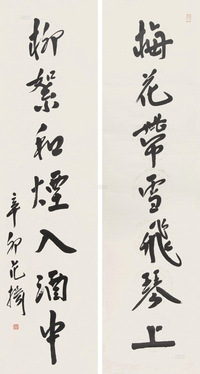 梅花帶雪飛琴上
柳絮和煙入酒中
辛卯范擕